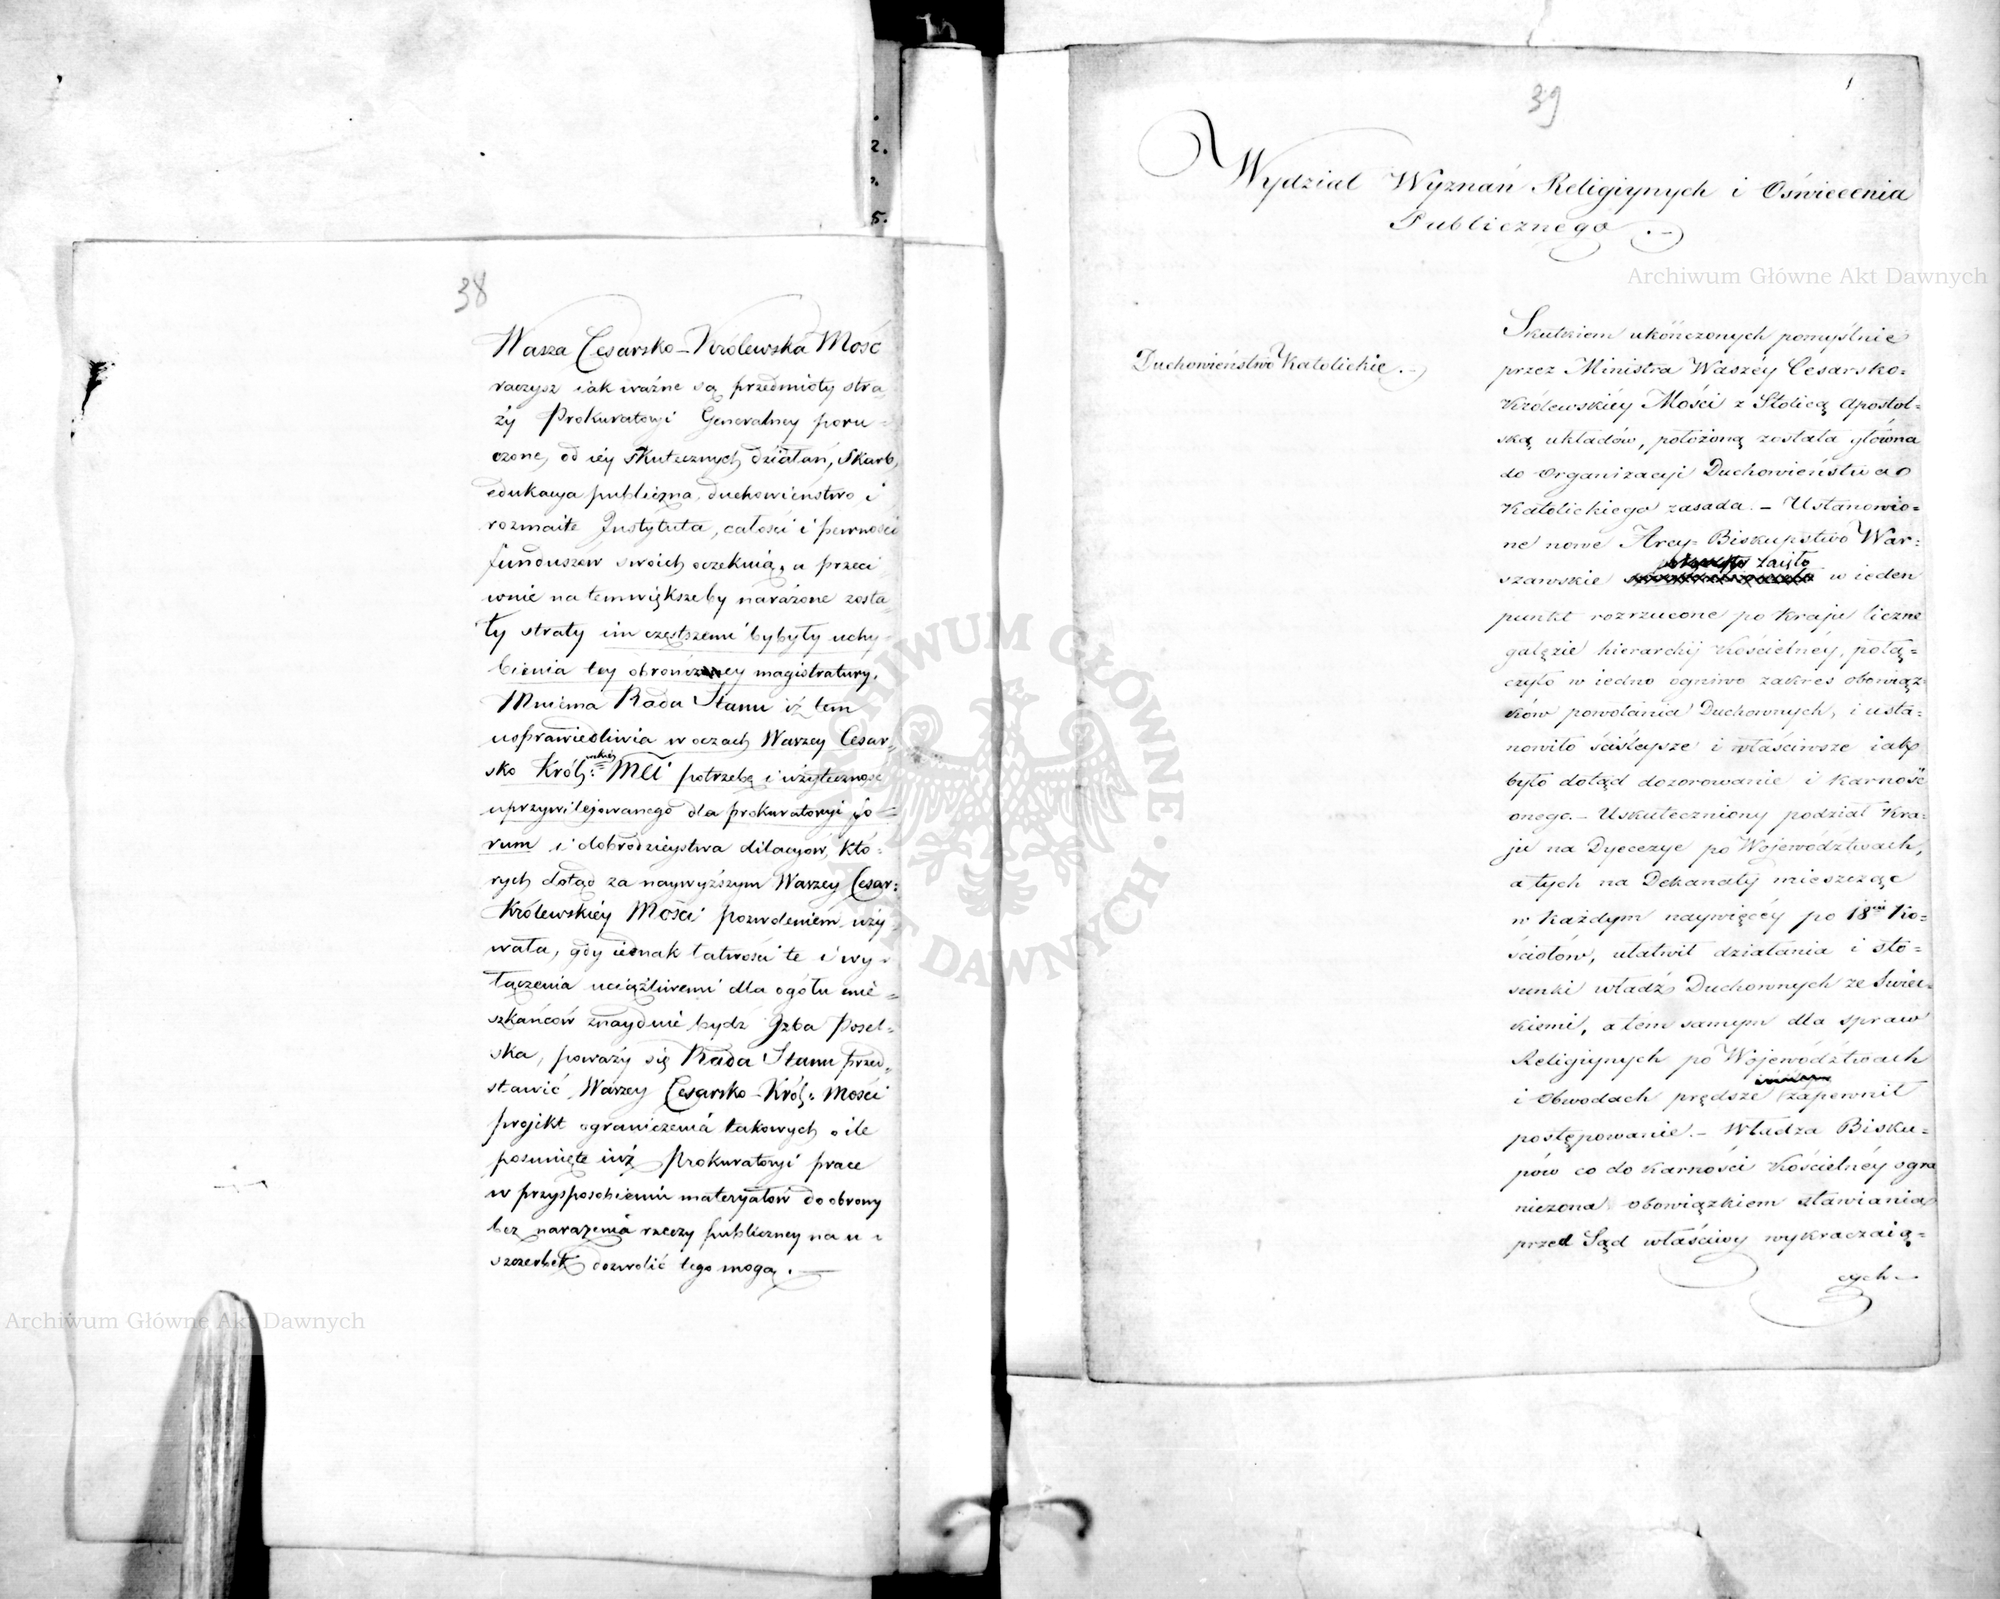 38
Wasza Cesarsko-Królewska Mość
raczysz iak ważne są przedmioty stra
ży Prokuratoryi Generalney poru=
czone, od iéy skutecznych działań, Skarb,
edukacya publiczna, duchowieństwo, i
rozmaite Instytuta, całości i pewności
funduszow swoich oczekuią, a przeci
wnie na temwiększeby narażone zosta=
ły straty im częstszemi bybyły uchy=
bienia tey obrończey magistratury.
Mniema Rada Stanu iż tem
usprawiedliwia w oczach Waszey Cesar=
sko Król: Mci potrzebę i użyteczność
uprzywilejowanego dla prokuratoryi fo=
rum i dobrodzieystwa dilacyów, któ=
rych dotąd za naywyższym Waszey Cesar:
Królewskiéy Mości pozwoleniem uży=
wała, gdy iednak łatwości te i wy=
łączenia uciążliwemi dla ogółu mie=
szkańców znayduie bydz Izba Posel=
ska, poważy się Rada Stanu przed=
stawić Waszey Cesarsko-Król: Mości
projekt ograniczenia takowych o ile
posunięte iuż Prokuratoryi prace
w przysposobieniu materyałow do obrony
bez narażenia rzeczy publiczney na u=
szczerbek dozwolić tego mogą.
39
Wydział Wyznań Religiynych i Oświecenia
Publicznego.
Duchowieństwo Katolickie.
Skutkiem ukończonych pomyślnie
przez Ministra Waszéy Cesarsko=
Królewskiéy Mości z Stolicą Apostol=
ską układów, położoną została główna
do Organizacyi Duchowieństwa
Katolickiego zasada. – Ustanowio=
ne nowe Arcy-Biskupstwo War=
zaięło
szawskie w ieden
punkt rozrzucone po Kraju liczne
gałęzie hierarchij Kościelnéy, połą=
czyło w iedno ogniwo zakres obowiąz=
ków powołania Duchownych, i usta=
nowiło ściśleysze i właściwsze iak
było dotąd dozorowanie i karność
onego. – Uskuteczniony podział Kra=
ju na Dyecezye po Województwach,
a tych na Dekanaty mieszcząc
w każdym naywięcéy po 18 Ko=
ściołów, ułatwił działania i sto=
sunki władz Duchownych ze Swiec=
kiemi, a tém samym dla spraw
Religiynych po Województwach
i Obwodach prędsze zapewnił
postępowanie. – Władza Bisku=
pów co do karności Kościelnéy ogra
niczona obowiązkiem stawiania
przed Sąd właściwy wykraczaią=
cych
Archiwum Główne Akt Dawnych
Archiwum Główne Akt Dawnych
ARCHIWUM GŁÓWNE AKT DAWNYCH